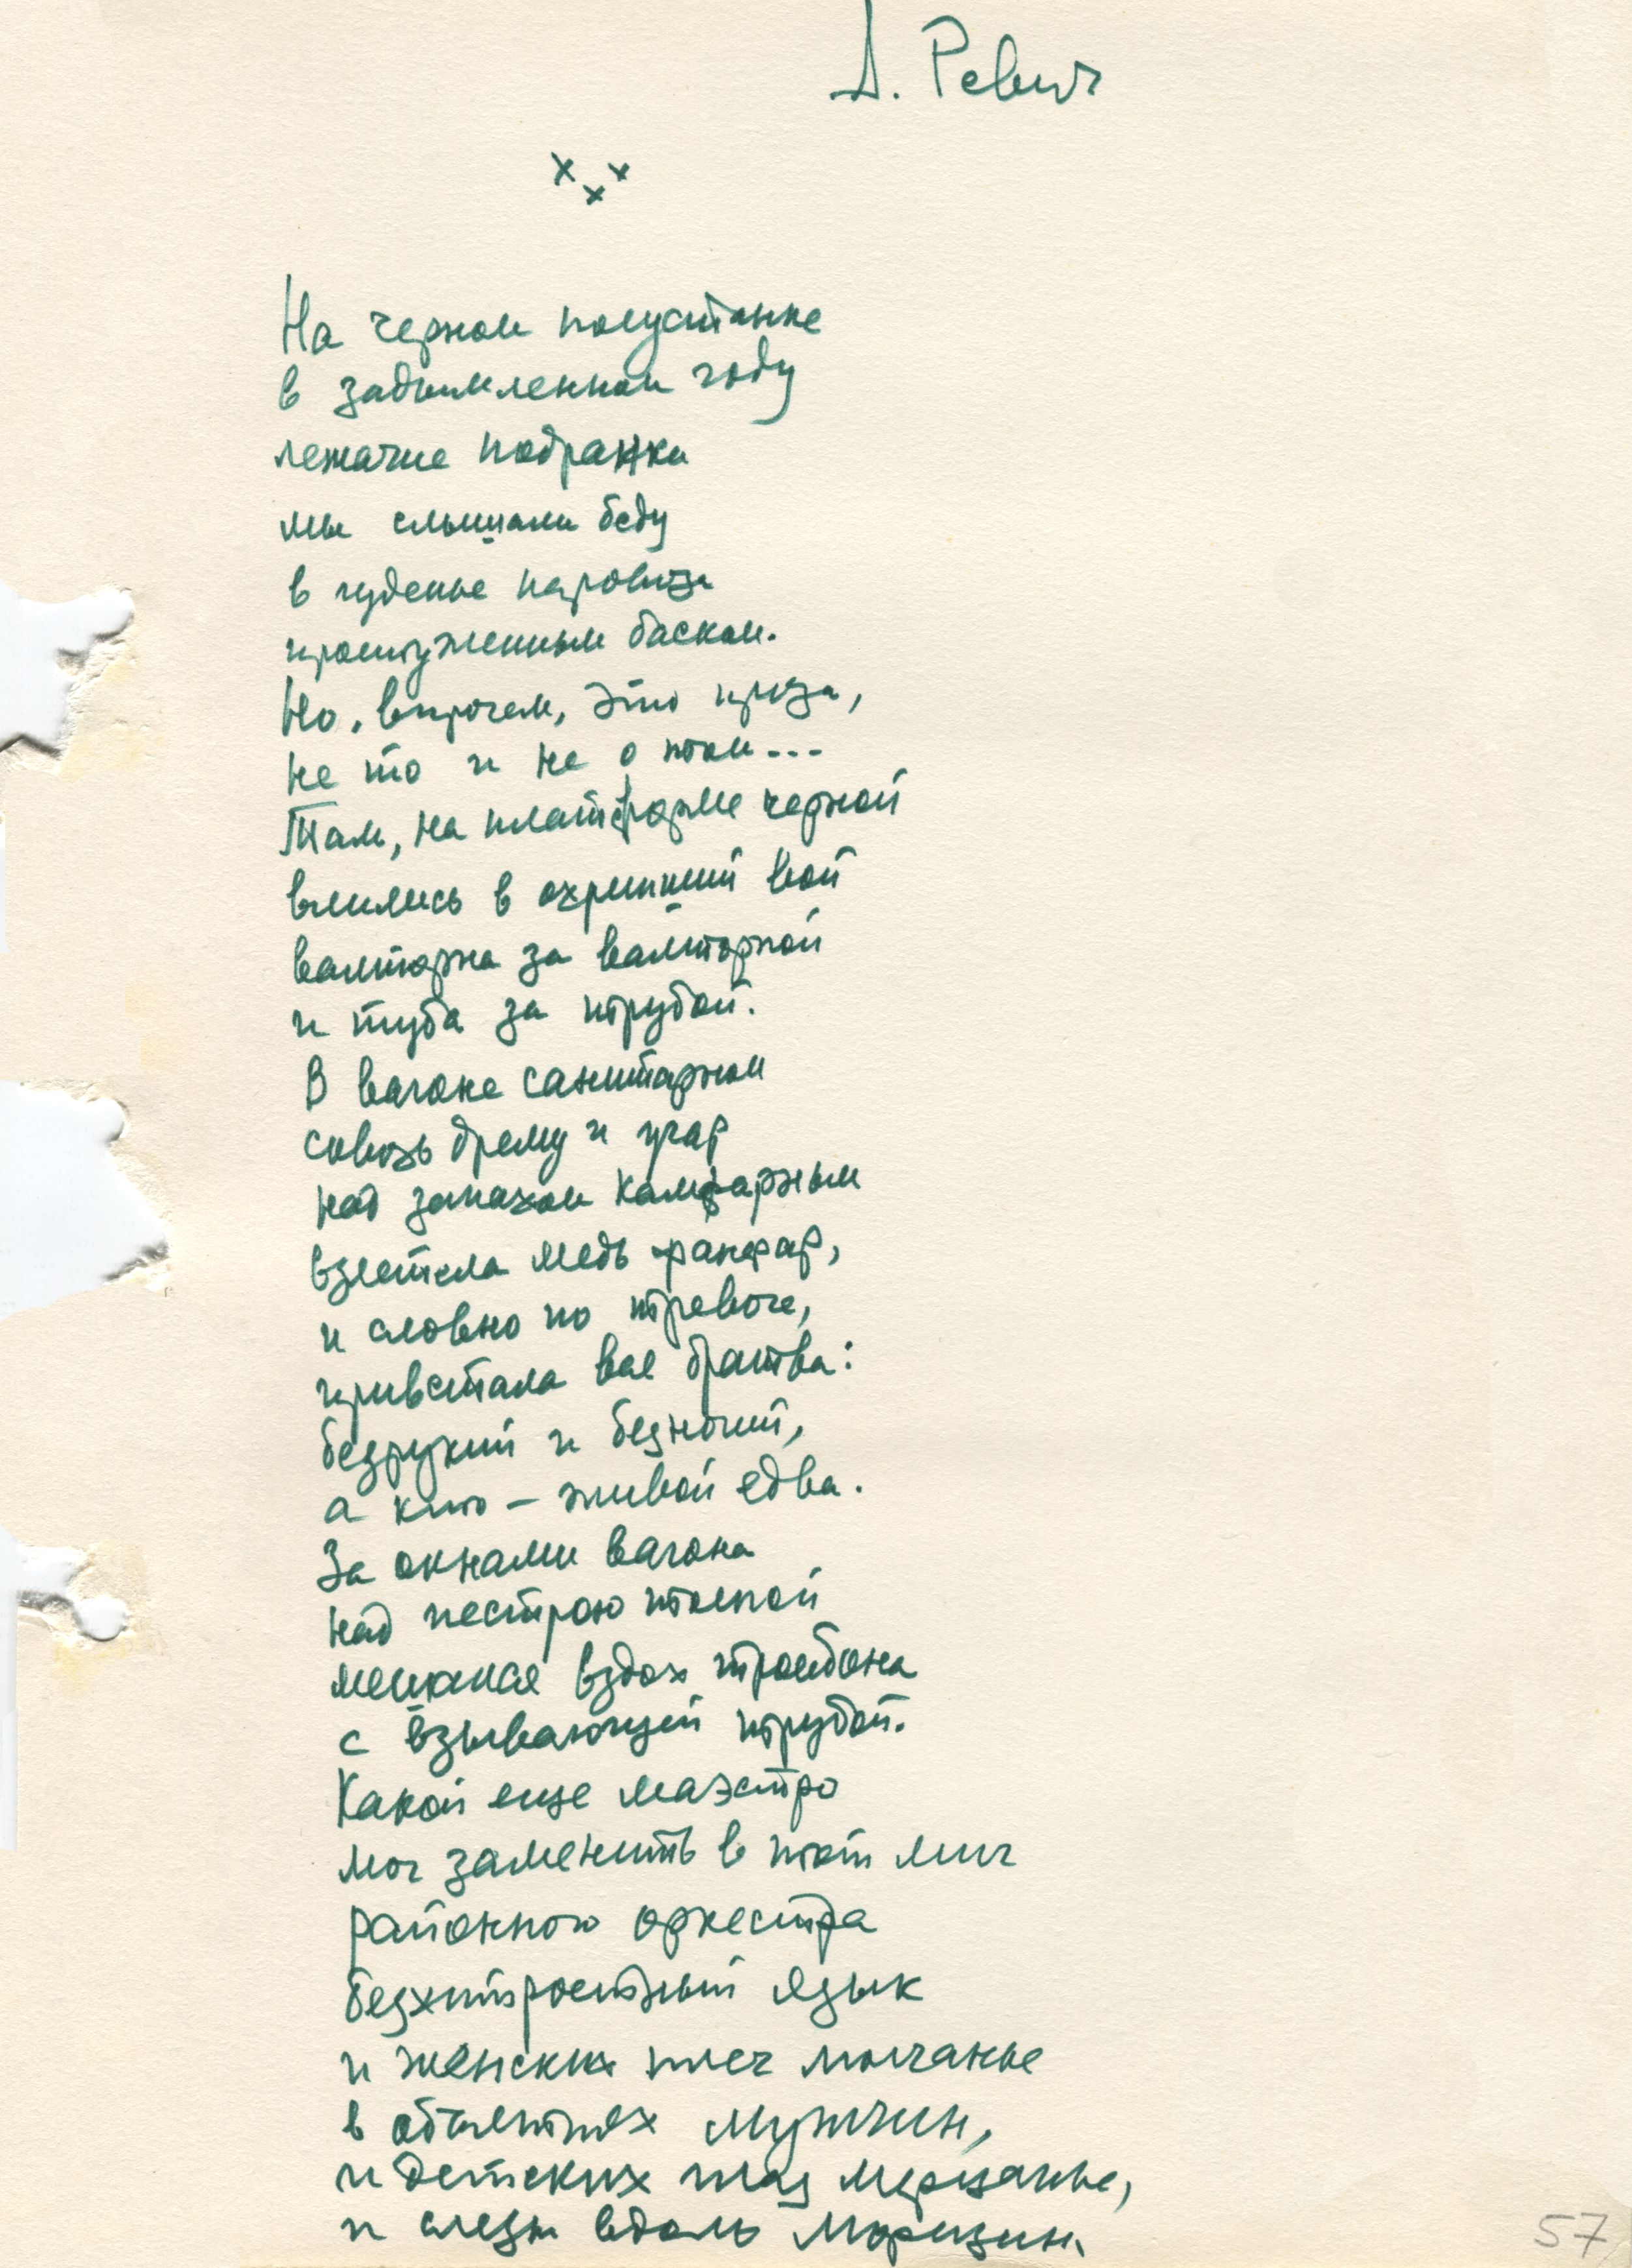 А. Ревич
x x x
На черном полустанке
в задымленном году
лежачие подранки
мы слышали беду
в гуденье паровоза
простуженным баском.
Но, впрочем, это проза,
не то и не о том...
Там, на платформе черной
влились в охрипший вой
валторна за валторной
и туба за трубой.
В вагоне санитарном
сквозь дрему и угар
над запахом камфарным
взлетела медь фанфар,
и словно по тревоге,
привстала вся братва:
безрукий и безногий,
а кто – живой едва.
За окнами вагона
над пестрою толпой
мешался вздох тромбона
с взывающей трубой.
Какой еще маэстро
мог заменить в тот миг
районного оркестра
безхитростный язык
и женских плеч молчанье
в объятьях мужчин,
и детских глаз мерцанье,
и слезы вдоль морщин.
57